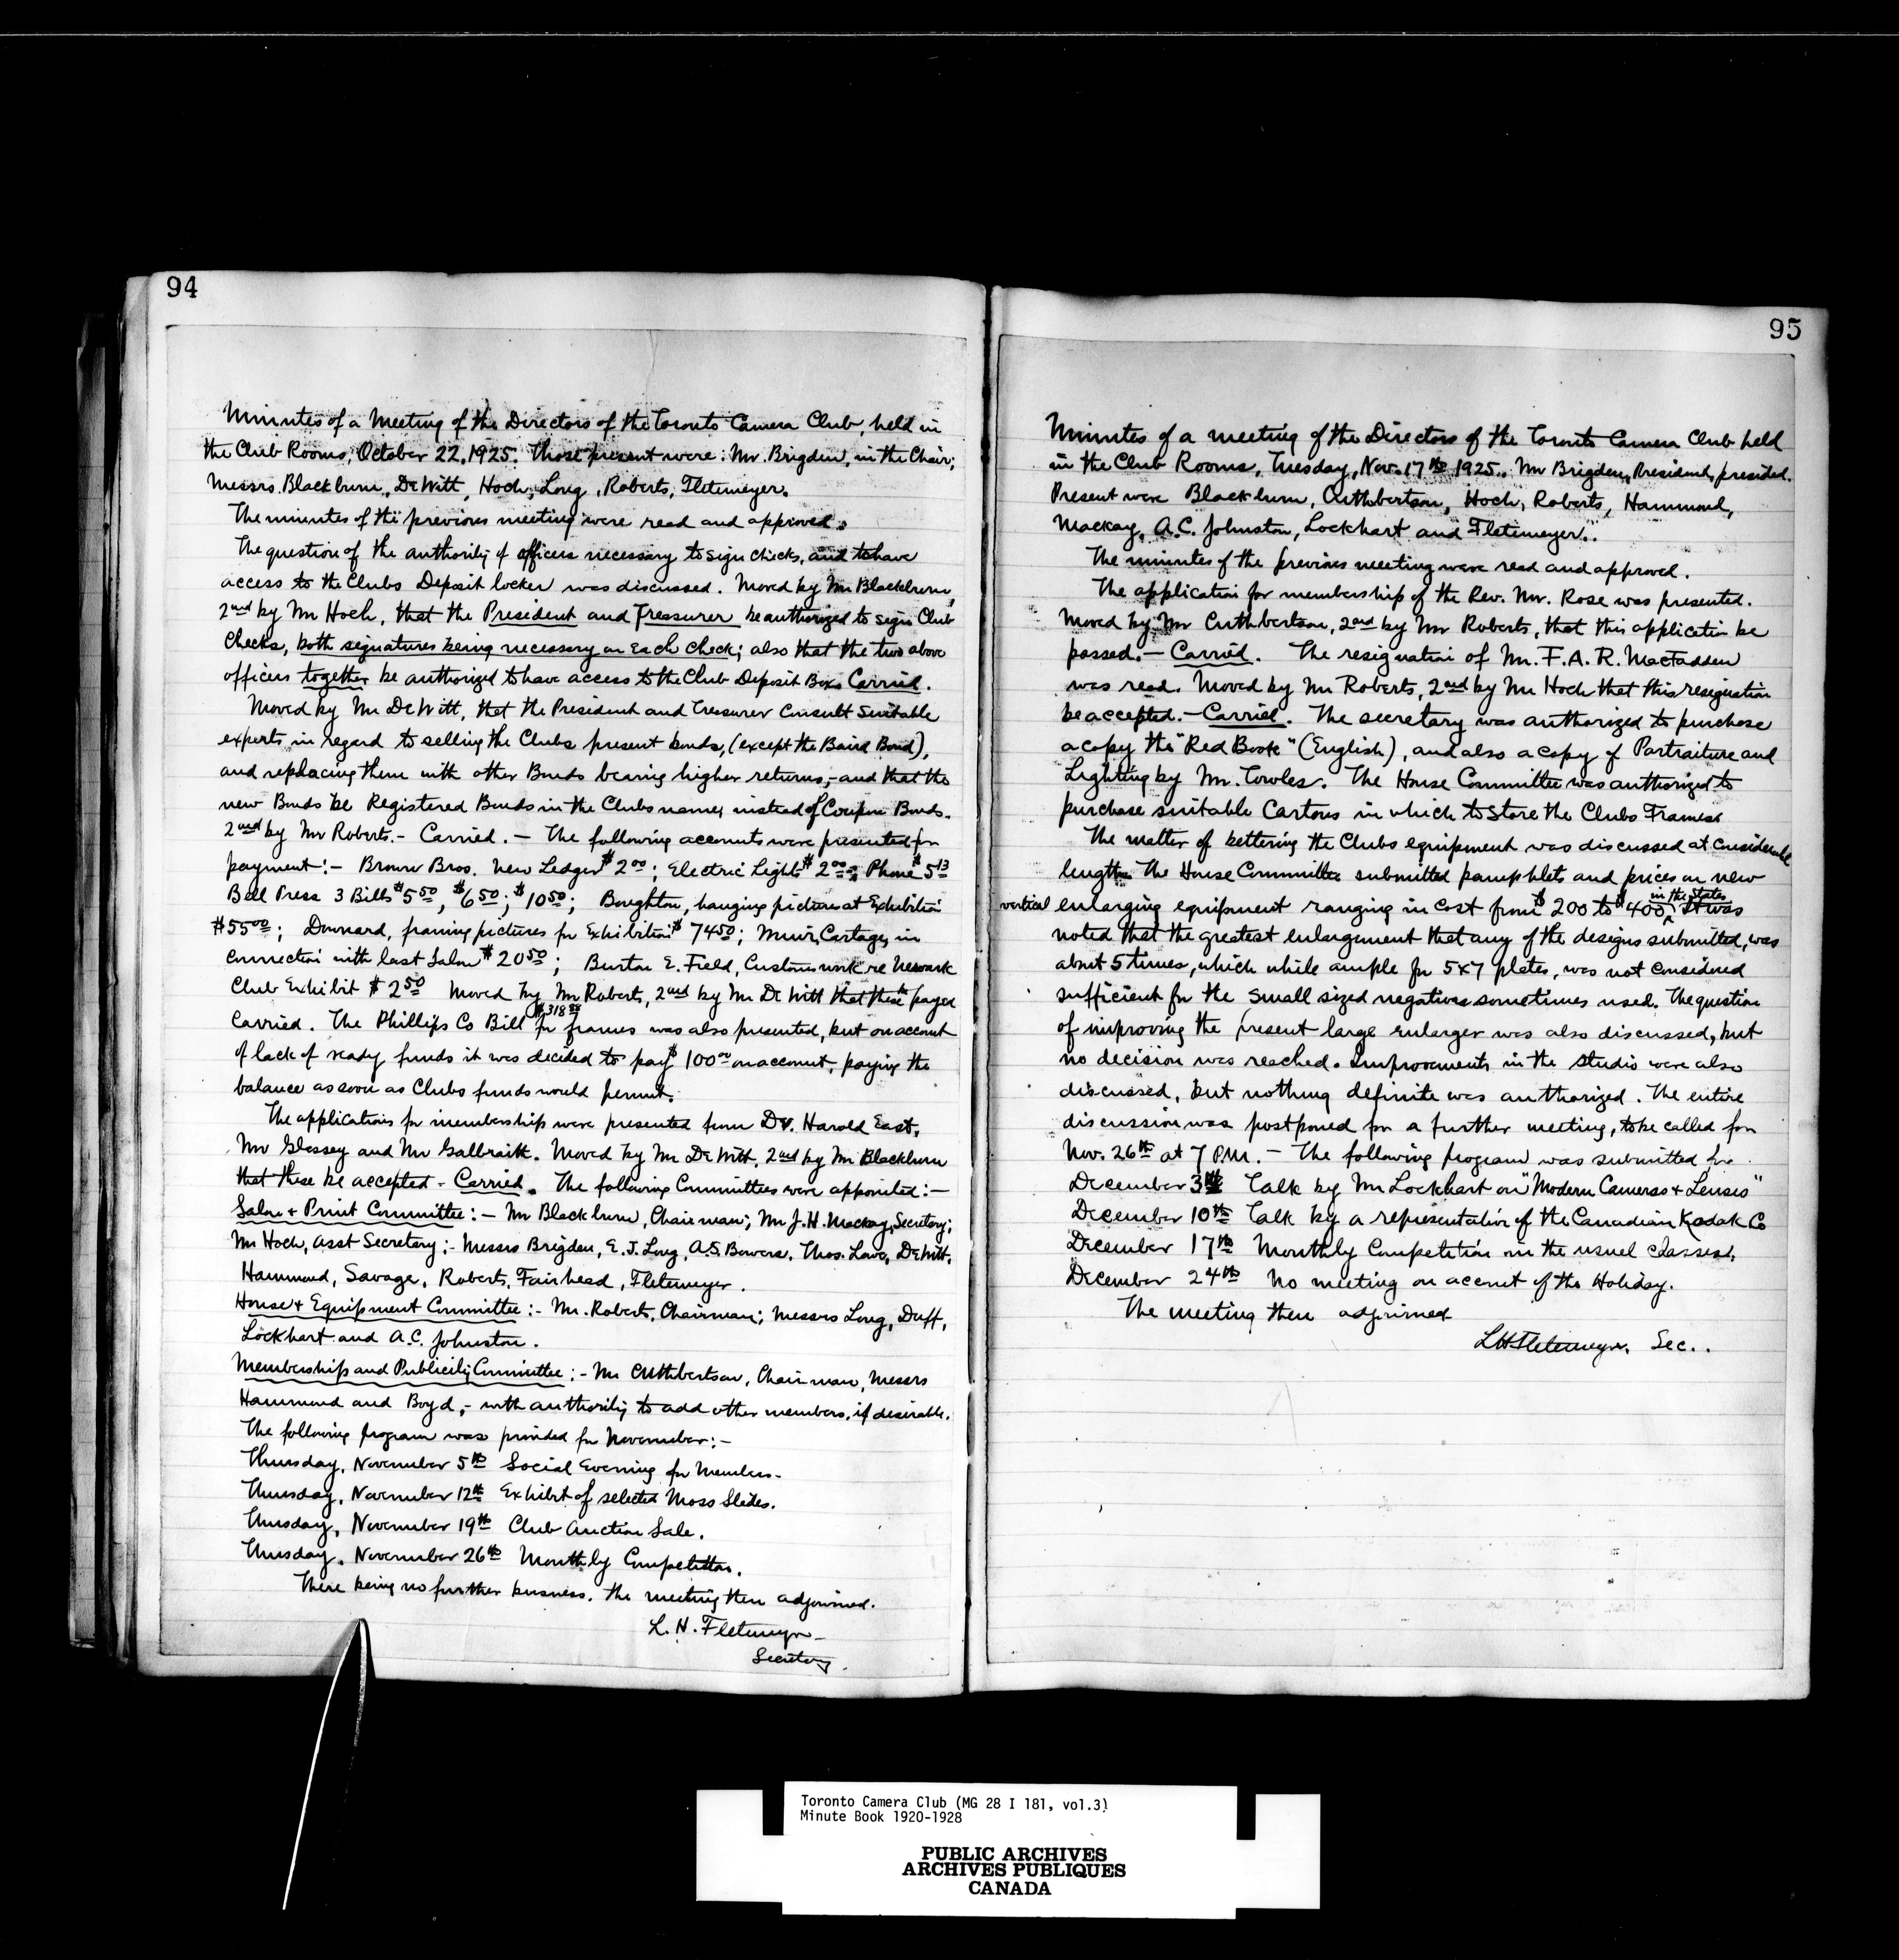 94
Minutes of a Meeting of the Directors of the Toronto Camera Club, held in
the Club Rooms, October 22, 1925. Those present were: Mr. Brigden, in the Chair;
Messrs. Blackburn, DeWitt, Hoch, Long, Roberts, Fletemeyer.
The minutes of the previous meeting were read and approved.
The question of the authority of officers necessary to sign checks, and to have
access to the Clubs Deposit locker was discussed. Moved by Mr Blackburn,
2nd by Mr Hoch, that the President and Treasurer be authorized to sign Club
Checks, both signatures being necessary on Each Check; also that the two above
officers together be authorized to have access to the Club Deposit Box. Carried.
Moved by Mr DeWitt, that the President and Treasurer Consult Suitable
experts in regard to selling the Clubs present bonds, (except the Baird Bond),
and replacing them with other Bonds bearing higher returns, - and that the
new Bonds be Registered Bonds in the Clubs name, instead of Coupon Bonds.
2nd by Mr Roberts. - Carried. - The following accounts were presented for
payment: - Brown Bros. New Ledger $2.00; Electric Light $2.00; Phone $5.13
Bell Press 3 Bills $5.50, $6.50; $10.50; Boughton, hanging pictures at Exhibition
$55.00; Dunnard, framing pictures for Exhibition $74.50; Muir, Cartage, in
Connection with last Salon $20.50; Burton E. Field, Customs work re Newark
Club Exhibit $2.50 Moved by Mr Roberts, 2nd by Mr DeWitt that these be payed
Carried. The Phillips Co Bill $318.88 for frames was also presented, but on account
of lack of ready funds it was decided to pay $100.00 on account, paying the
balance as soon as Clubs funds would permit.
The applications for membership were presented from Dr. Harold East,
Mr Glossey and Mr Galbraith. Moved by Mr DeWitt, 2nd by Mr Blackburn
that these be accepted - Carried. The following Committees were appointed: -
Salon & Print Committee: - Mr Blackburn, Chairman; Mr J.H. Mackay, Secretary;
Mr Hoch, Asst Secretary; - Messrs Brigden, E.J. Long, A.S. Bowers, Thos. Lowe, DeWitt,
Hammond, Savage, Roberts, Fairhead, Fletemeyer.
House & Equipment Committee: - Mr. Roberts, Chairman; Messrs Long, Duff,
Lockhart and A.C. Johnston.
Membership and Publicity Committee: - Mr Cuthbertson, Chairman, Messrs
Hammond and Boyd, - with authority to add other members, if desirable.
The following program was provided for November: -
Thursday, November 5th Social Evening for Members.
Thursday, November 12th Exhibit of selected Moss Slides.
Thursday, November 19th Club Auction Sale.
Thursday, November 26th Monthly Competition.
There being no further business, the meeting then adjourned.
L. H. Fletemeyer
Secretary.
95
Minutes of a meeting of the Directors of the Toronto Camera Club held
in the Club Rooms, Tuesday, Nov. 17th 1925. Mr Brigden, President, presided.
Present were Blackburn, Cuthbertson, Hoch, Roberts, Hammond,
Mackay, A.C. Johnston, Lockhart and Fletemeyer.
The minutes of the previous meeting were read and approved.
The application for membership of the Rev. Mr. Rose was presented.
Moved by Mr Cuthbertson, 2nd by Mr Roberts, that this application be
passed. - Carried. The resignation of Mr. F.A.R. MacFadden
was read. Moved by Mr Roberts, 2nd by Mr Hoch that this resignation
be accepted. - Carried. The secretary was authorized to purchase
a copy the "Red Book" (English), and also a copy of Portraiture and
Lighting by Mr. Towles. The House Committee was authorized to
purchase suitable Cartons in which to Store the Clubs Frames.
The matter of bettering the Clubs equipment was discussed at considerable
length. The House Committee submitted pamphlets and prices on new
vertical enlarging equipment ranging in cost from $200 to $400, in the States It was
noted that the greatest enlargement that any of the designs submitted, was
about 5 times, which while ample for 5x7 plates, was not considered
sufficient for the small sized negatives sometimes used. The question
of improving the present large enlarger was also discussed, but
no decision was reached. Improvements in the studio were also
discussed, but nothing definite was authorized. The entire
discussion was postponed for a further meeting, to be called for
Nov. 26th at 7 P.M. - The following program was submitted for
December 3rd Talk by Mr Lockhart on "Modern Cameras & Lenses"
December 10th Talk by a representative of the Canadian Kodak Co
December 17th Monthly Competition in the usual classes.
December 24th No meeting on account of the Holiday.
The meeting then adjourned
L H Fletemeyer, Sec..
Toronto Camera Club (MG 28 I 181, vol.3)
Minute Book 1920-1928
PUBLIC ARCHIVES
ARCHIVES PUBLIQUES
CANADA